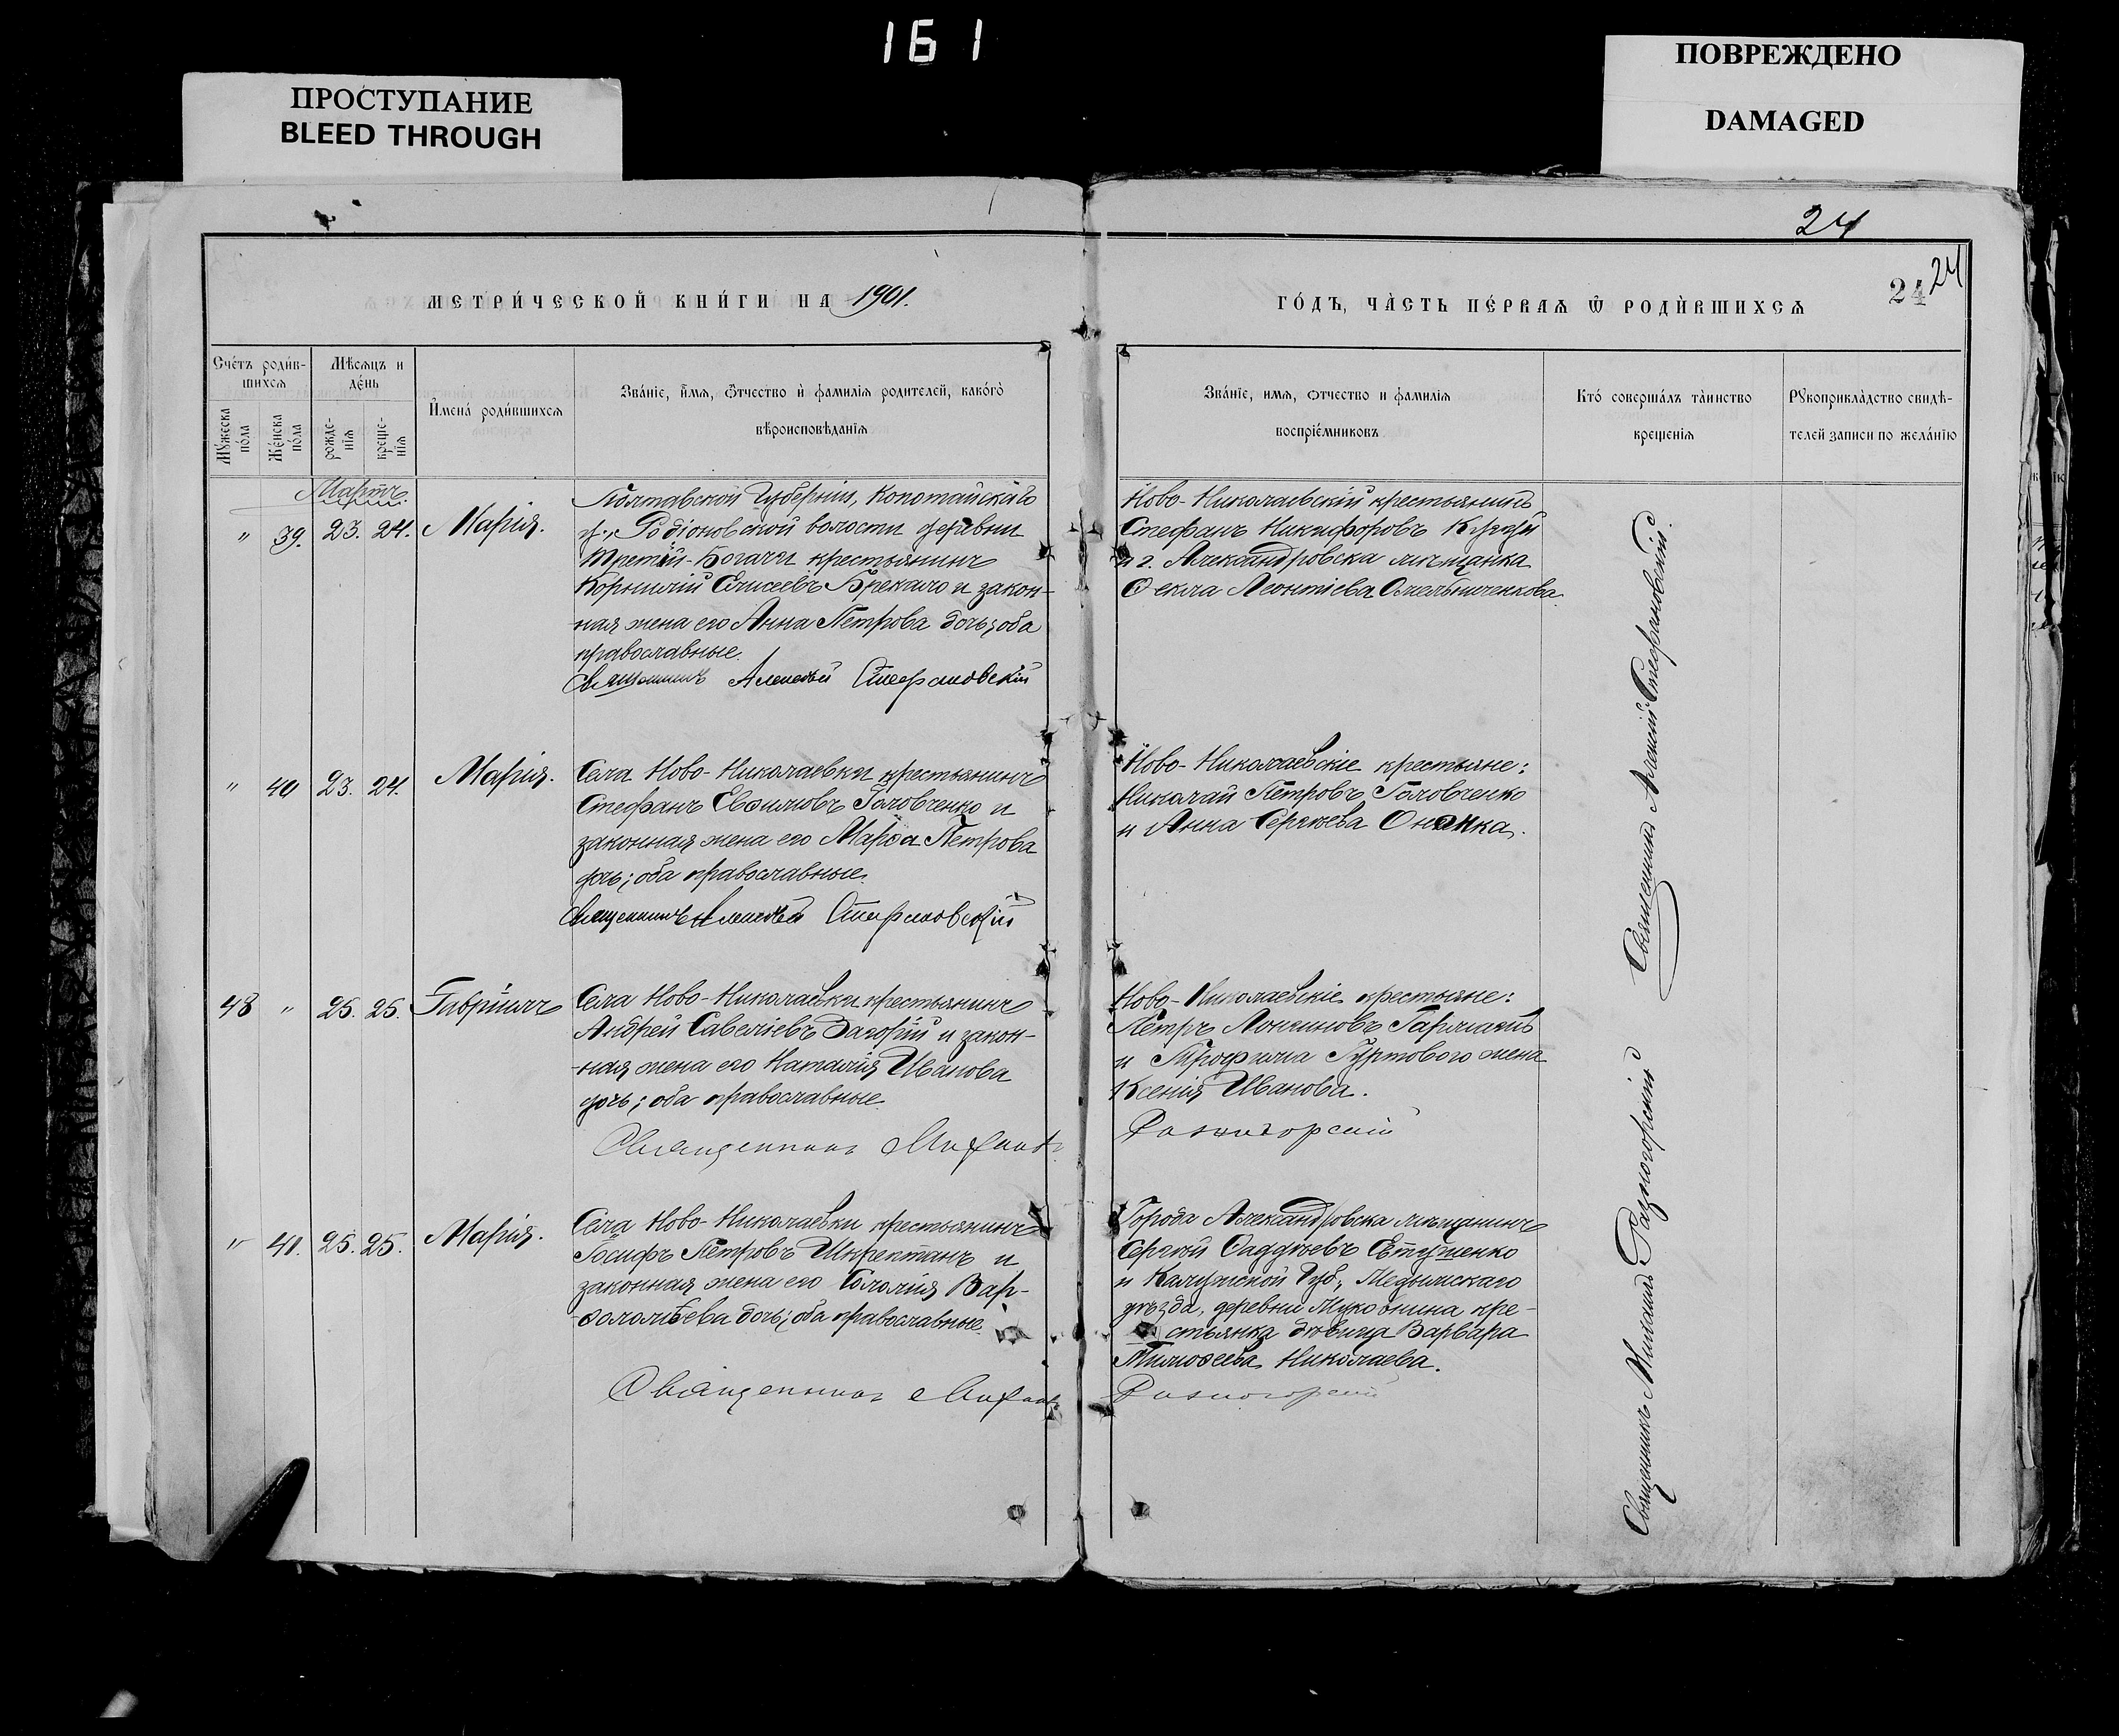 161
ПРОСТУПАНИЕ
BLEED THROUGH
ПОВРЕЖДЕНО
DAMAGED
24
24
24
МЕТРИ́ЧЕСКОЙ КНИ́ГИ НА 1901.
ГО́ДЪ, ЧА̀СТЬ ПЕ́РВАЯ Ѿ РОДЍВШИХСЯ
Сче́тъ роди́в-
шихся
Мѣсяцъ и
де́нь
Му́жеска
по́ла
Же́нска
по́ла
рожде-
нія
креще-
нія
И҆мена́ роди́вшихся
Зва́ніе, и҆мя, ѻ҆тчество и҆ фамилія родителей, како́гѡ
вѣроисповѣданія
Зва́ніе, имя, отчество и фамилія
воспріе́мниковъ
Кто́ соверша́лъ та̀инство
крещенія
Рꙋкоприкла́дство свидѣ-
телей записи по жела́нію
Мартъ.
" 39. 23. 24. Марія.
Полтавской Губерніи,
у., Родіоновской волости деревни
Третій-Богачи крестьянинъ
Корнилій Елисеевъ и закон-
ная жена его Анна Петрова дочь; оба
православные.
Священникъ Алексѣй Стефановскій
Ново-Николаевскій крестьянинъ
Стефанъ Никифоровъ
и г. Александровска мѣщанка
Ѳекла Леонтіева Омельниченкова.
" 40 23. 24. Марія.
Села Ново-Николаевки крестьянинъ
Стефанъ Головченко и
законная жена его Марѳа Петрова
дочь; оба православные.
Священникъ Алексѣй Стефановскій
Ново-Николаевскіе крестьяне:
Николай Петровъ Головченко
и Анна Сергѣева
Священникъ Алексій Стефановскій.
48 " 25. 25. Гавріилъ
Села Ново-Николаевки крестьянинъ
Андрей Савеліевъ Загорій и закон-
ная жена его Наталія Иванова
дочь; оба православные.
Священникъ Михаилъ
Ново-Николаевскіе крестьяне:
Петръ Лонгиновъ
и Трофима Гуртового жена
Ксенія Иванова.
Разногорскій
" 41. 25. 25. Марія.
Села Ново-Николаевки крестьянинъ
Іосифъ Петровъ и
законная жена его Соломія Вар-
ѳоломѣева дочь; оба православные.
Священникъ Михаилъ
Города Александровска мѣщанинъ
Сергѣй Ѳаддѣевъ Евтушенко
и Калужской губ., Медынскаго
уѣзда, деревни кре-
стьянка дѣвица Варвара
Тимоѳеева Николаева.
Разногорскій
Священникъ Михаилъ Разногорскій